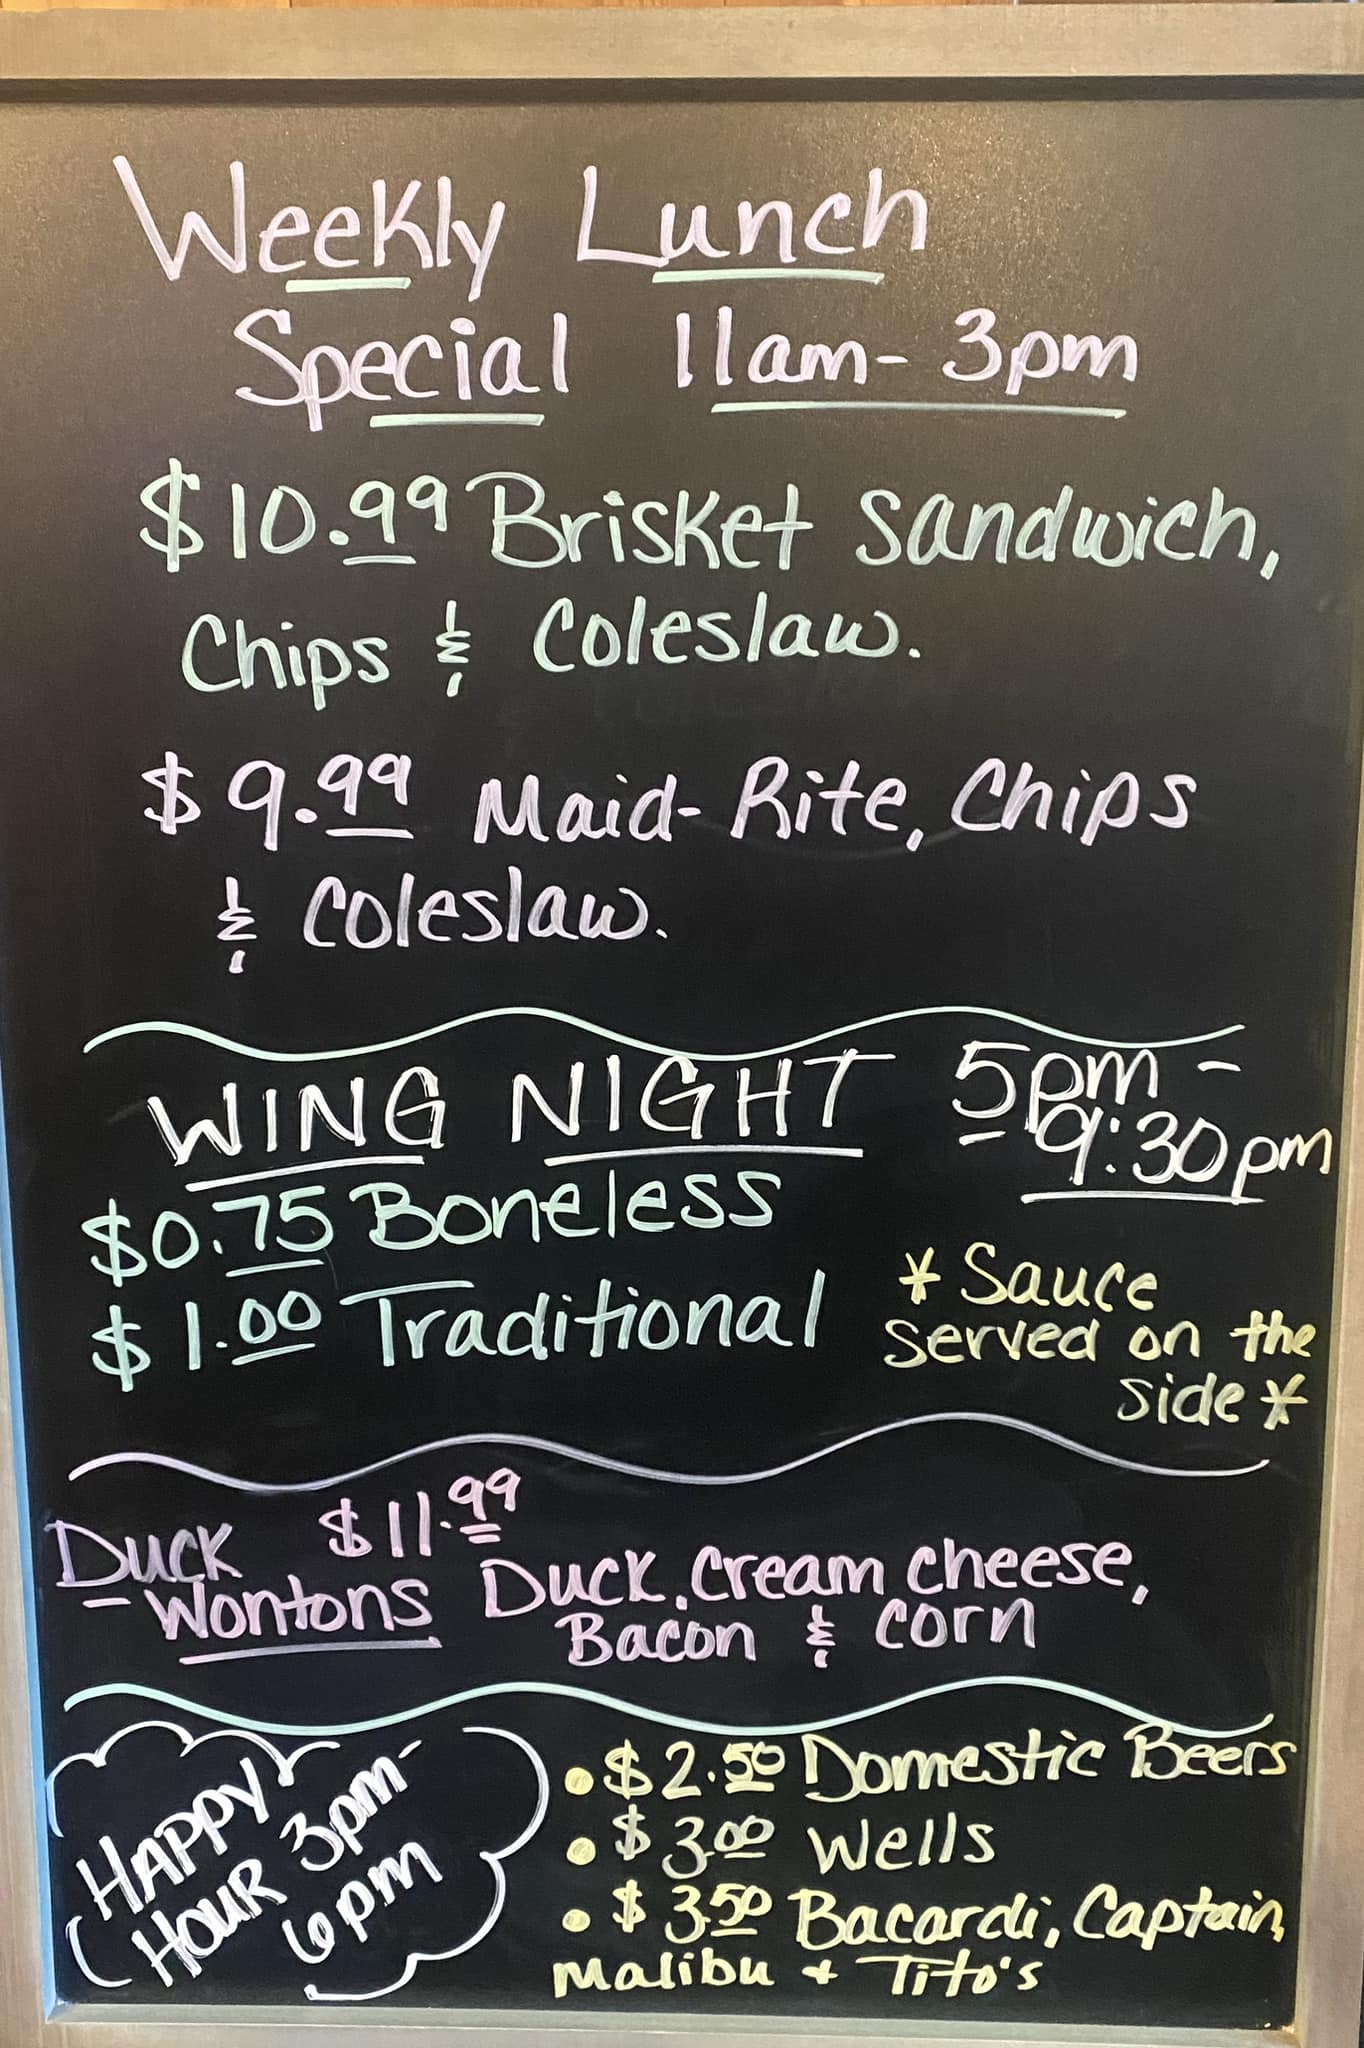 Weekly Lunch
Special 11am-3pm
$10.99 Brisket Sandwich,
Chips & Coleslaw.
$9.99 Maid-Rite, Chips
& Coleslaw.
WING NIGHT 5pm-
9:30pm
$0.75 Boneless
$1.00 Traditional
*Sauce
served on the
side*
Duck $11.99
Wontons Duck, cream cheese,
Bacon & corn
HAPPY
HOUR 3pm-
6pm
• $2.50 Domestic Beers
• $3.00 Wells
• $3.50 Bacardi, Captain,
Malibu + Tito's